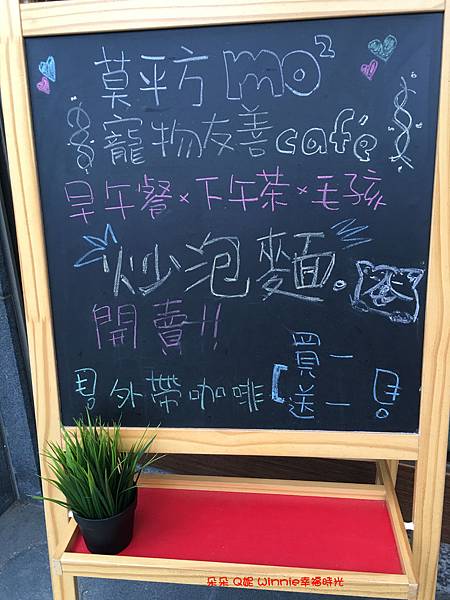 莫平方 mo²
寵物友善café
早午餐×下午茶×毛孩
炒泡麵
開賣!!
外帶咖啡 [買一送一
朵朵 Q妮 Winnie幸福時光